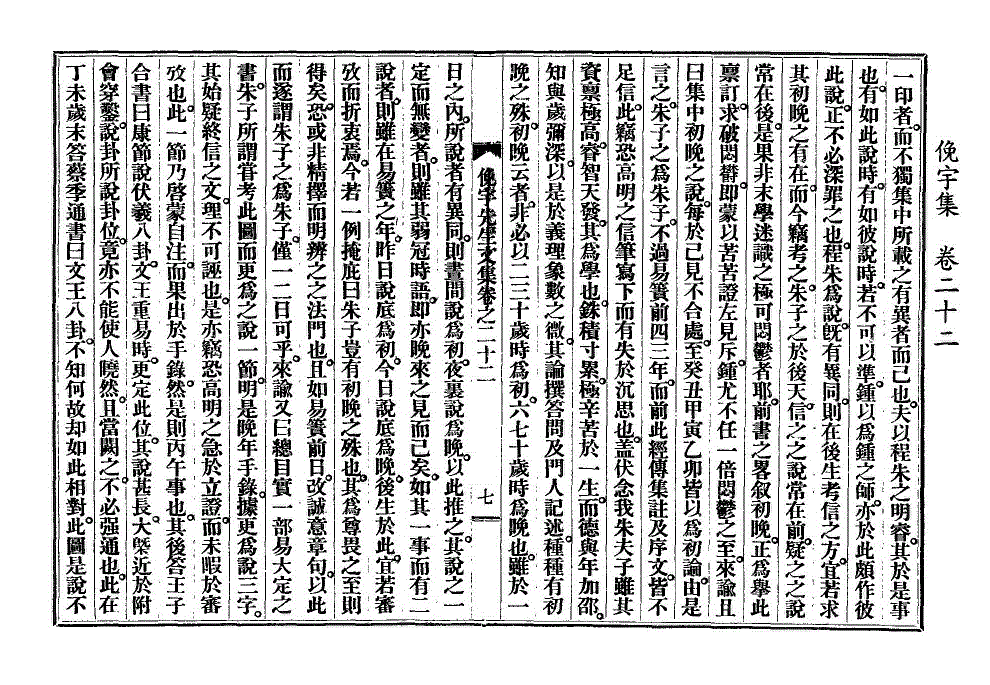 俛宇集 卷二十二
一印者。而不獨集中所載之有異者而已也。夫以程朱之明睿。其於是事
也。有如此說時。有如彼說時。若不可以準。鍾以爲鍾之師。亦於此頗作彼
此說。正不必深罪之也。程朱爲說。旣有異同。則在後生考信之方。宜若求
其初晚之有在。而今竊考之。朱子之於後天。信之之說常在前。疑之之說
常在後。是果非末學迷識之極可悶鬱者耶。前書之畧叙初晚。正爲擧此
禀訂。求破悶鬱。卽蒙以苦苦證左見斥。鍾尤不任一倍悶鬱之至。來諭且
曰集中初晚之說。每於己見不合處。至癸丑甲寅乙卯皆以爲初論。由是
言之。朱子之爲朱子。不過易簀前四三年。而前此經傳集註及序文。皆不
足信。此竊恐高明之信筆寫下而有失於沉思也。盖伏念我朱夫子雖其
資禀極高。睿智天發。其爲學也。銖積寸累。極辛苦於一生。而德與年加卲。
知與歲彌深。以是於義理象數之微。其論撰答問及門人記述。種種有初
晚之殊。初晚云者。非必以二三十歲時爲初。六七十歲時爲晚也。雖於一
俛宇先生文集卷之二十二 七
日之內。所說者有異同。則晝間說爲初。夜裏說爲晚。以此推之。其說之一
定而無變者。則雖其弱冠時語。卽亦晚來之見而已矣。如其一事而有二
說者。則雖在易簀之年。昨日說底爲初。今日說底爲晚。後生於此。宜若審
攷而折衷焉。今若一例掩庇曰朱子豈有初晚之殊也。其爲尊畏之至則
得矣。恐或非精擇而明辨之之法門也。且如易簀前日。改誠意章句。以此
而遂謂朱子之爲朱子。僅一二日可乎。來諭又曰總目實一部易大定之
書。朱子所謂嘗考此圖而更爲之說一節。明是晚年手錄。據更爲說三字。
其始疑終信之文。理不可誣也。是亦竊恐高明之急於立證。而未暇於審
攷也。此一節乃啓蒙自注。而果出於手錄。然是則丙午事也。其後答王子
合書曰康節說伏羲八卦。文王重易時。更定此位。其說甚長。大槩近於附
會穿鑿。說卦所說卦位。竟亦不能使人曉然。且當闕之。不必强通也。此在
丁未歲末。答蔡季通書曰文王八卦。不知何故却如此相對。此圖是說不